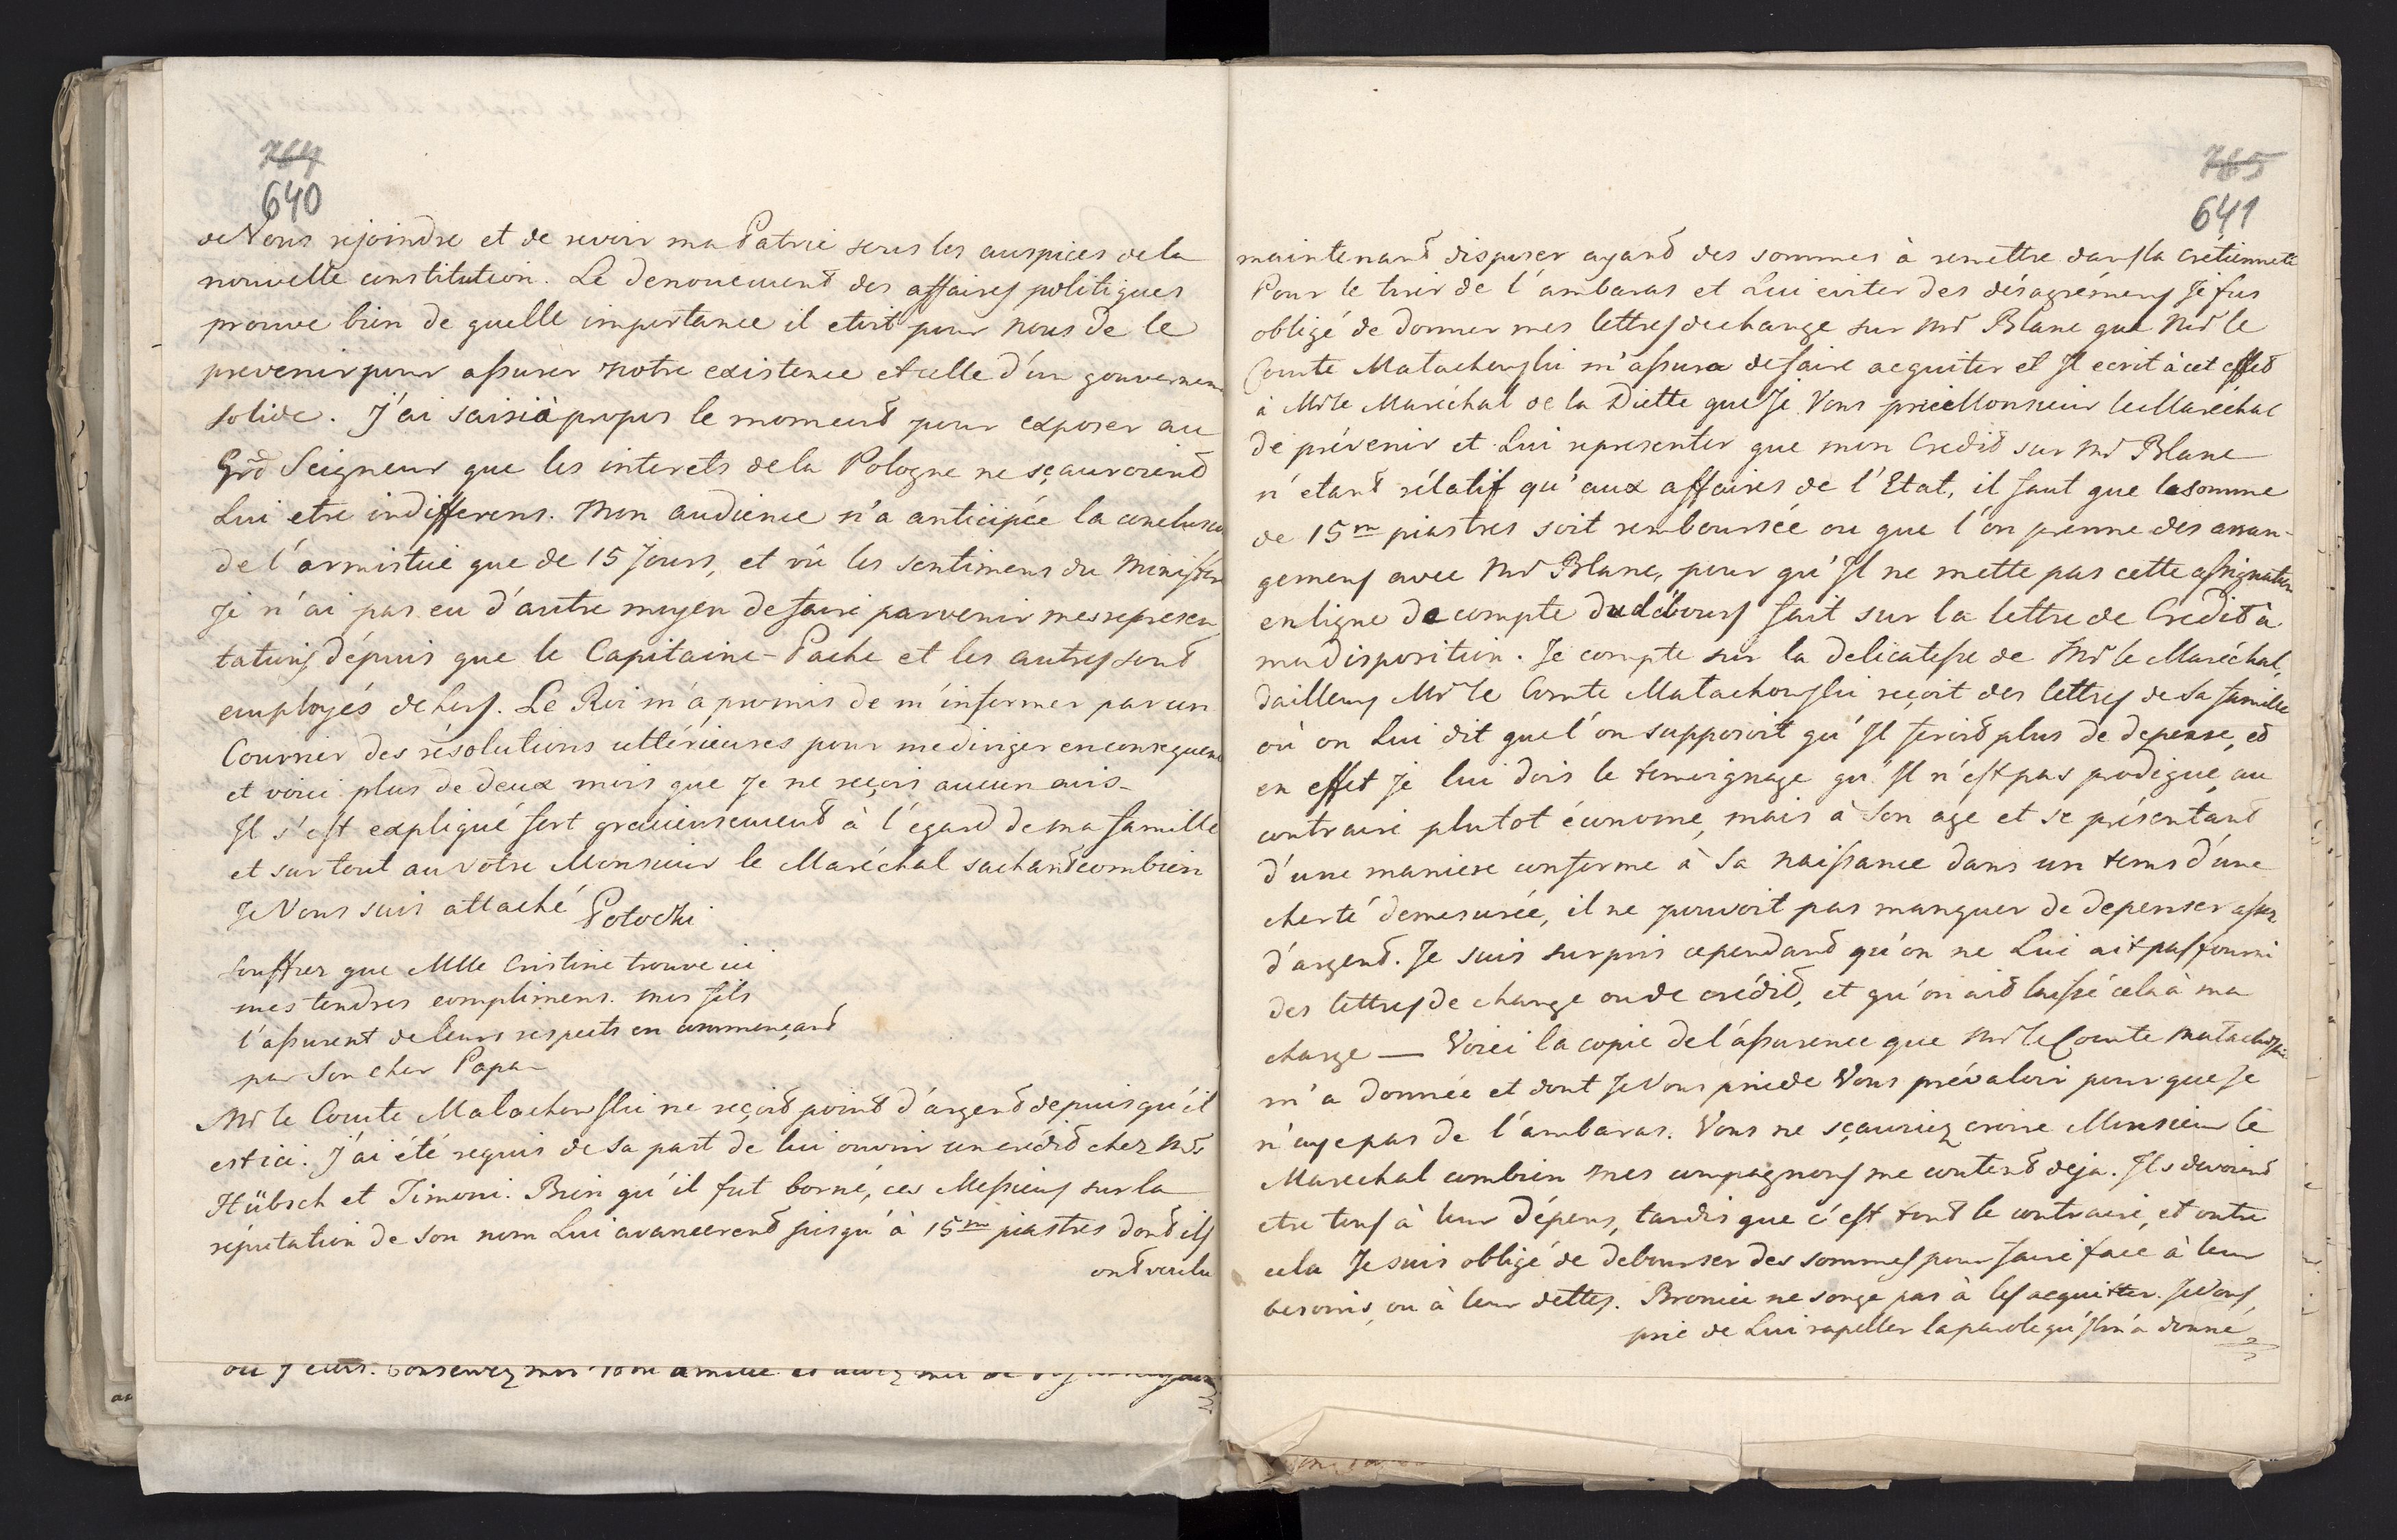 764
640
de Vous rejoindre et de revoir ma Patrie sous les auspices de la
nouvelle constitution. Le denouement des affaires politiques
prouve bien de quelle importance il etoit pour nous de le
prevenir pour assurer notre existence et celle d'un gouvernem
solide. J'ai saisi à propos le moment pour exposer au
Grd Seigneur que les interets de la Pologne ne sçauroient
Lui etre indifferens. Mon audience n'a anticipée la conclusion
de l'armistice que de 15 Jours, et vû les sentimens du Ministere
Je n'ai pas eu d'autre moyen de faire parvenir mes represen
tations dépuis que le Capitaine-Pache et les autres sont
employés dehors. Le Roi m'a promis de m'informer par un
Courrier des résolutions ultérieures pour me diriger en consequence
et voici plus de deux mois que je ne reçois aucun avis.
Il s'est expliqué fort gracieusement à l'égard de ma famille
et sur tout au votre Monsieur le Maréchal sachant combien
Je Vous suis attaché Potocki
Souffrez que Mlle Cristine trouve ici
mes tendres complimens. mes fils
l'assurent de leurs respects en commençant
par Son cher Papa
Mr le Comte Malachowski ne reçoit point d'argent depuis qu'il
est ici. J'ai été requis de sa part de lui ouvrir un credit chez Mrs
Hübsch et Timoni. Bien qu'il fut borné, ces Messieurs sur la
réputation de son nom Lui avancerent jusqu'à 15m piastres dont ils
ont voulu
ou 7 eurs. Conservez moi votre amitié et
765
641
maintenant disposer ayant des sommes à remettre dans la Crétienneté
Pour le tirer de l'ambaras et Lui eviter des désagrémens Je fus
obligé de donner mes lettres de change sur Mr Blanc que Mr le
Comte Matachowski m'assura de faire acquiter et Il ecrit à cet effet
à Mr le Maréchal de la Diette que Je Vous prie Monsieur le Maréchal
de prévenir et Lui representer que mon Credit sur Mr Blanc
n'etant rélatif qu'aux affaires de l'Etat, il faut que la somme
de 15m piastres soit remboursée ou que l'on prenne des arran-
gemens avec Mr Blanc, pour qu'Il ne mette pas cette assignation
en ligne de compte du débours fait sur la lettre de Credit à
ma disposition. Je compte sur la delicatesse de Mr le Maréchal,
dailleurs Mr le Comte Matachowski reçoit des lettres de Sa famille
où on Lui dit que l'on supposoit qu'Il feroit plus de depense, et
en effet je lui dois le temoignage qu'Il n'est pas prodigue, au
contraire plutot économe, mais à Son age et se présentant
d'une maniere conforme à Sa naissance dans un tems d'une
cherté demesurée, il ne pouvoit pas manquer de depenser assez
d'argent. Je suis surpris cependant qu'on ne Lui ait pas fourni
des lettres de change ou de crédit, et qu'on ait laissé cela à ma
charge — Voici la copie de l'assurence que Mr le Comte Matachowski
m'a donnée et dont Je Vous prie de Vous prévaloir pour que Je
n'aye pas de l'ambaras. Vous ne sçauriez croire Monsieur le
Marechal combien mes compagnons me coutent deja. Ils devoient
etre tous à leur dépens, tandis que c'est tout le contraire, et outre
cela Je suis obligé de debourser des sommes pour faire face à leur
besoins, ou à leur dettes. Bronice ne songe pas à les acquitter. Je Vous
prie de Lui rapeller la parole qu'Il m'a donné